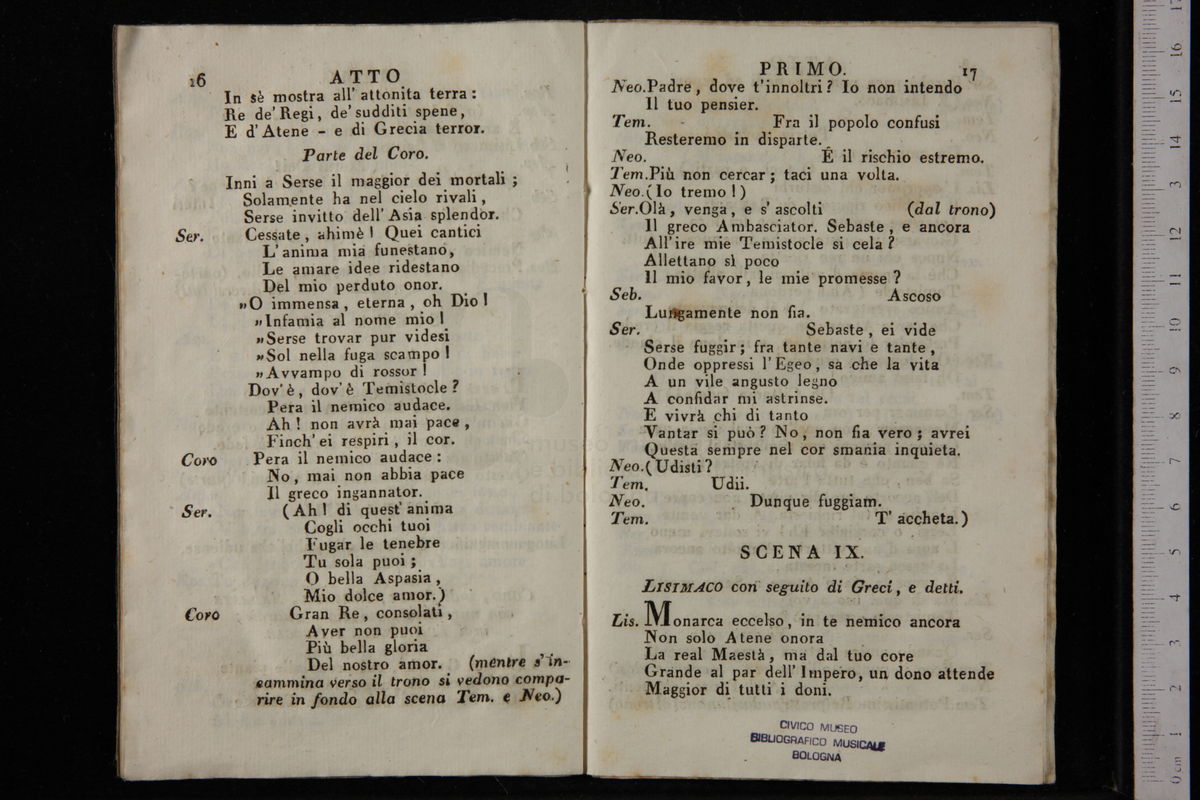 16 ATTO
In sè mostra all' attonita terra :
Re de' Regi, de' sudditi spene,
E d' Atene - e di Grecia terror.
Parte del Coro.
Inni a Serse il maggior dei mortali ;
Solamente ha nel cielo rivali,
Serse invitto dell' Asia splendor.
Ser. Cessate, ahimè ! Quei cantici
L' anima mia funestano,
Le amare idee ridestano
Del mio perduto onor.
„O immensa, eterna, oh Dio !
„Infamia al nome mio !
„Serse trovar pur videsi
„Sol nella fuga scampo !
„Avvampo di rossor !
Dov' è, dov' è Temistocle ?
Pera il nemico audace.
Ah ! non avrà mai pace,
Finch' ei respiri, il cor.
Coro Pera il nemico audace :
No, mai non abbia pace
Il greco ingannator.
Ser. (Ah ! di quest' anima
Cogli occhi tuoi
Fugar le tenebre
Tu sola puoi ;
O bella Aspasia,
Mio dolce amor.)
Coro Gran Re, consolati,
Aver non puoi
Più bella gloria
Del nostro amor. (mentre s' in-
cammina verso il trono si vedono compa-
rire in fondo alla scena Tem. e Neo.)
PRIMO. 17
Neo. Padre, dove t' innoltri ? Io non intendo
Il tuo pensier.
Tem. Fra il popolo confusi
Resteremo in disparte.
Neo. É il rischio estremo.
Tem. Più non cercar ; taci una volta.
Neo. (Io tremo !)
Ser. Olà, venga, e s' ascolti (dal trono)
Il greco Ambasciator. Sebaste, e ancora
All' ire mie Temistocle si cela ?
Allettano sì poco
Il mio favor, le mie promesse ?
Seb. Ascoso
Lungamente non fia.
Ser. Sebaste, ei vide
Serse fuggir ; fra tante navi e tante,
Onde oppressi l' Egeo, sa che la vita
A un vile angusto legno
A confidar mi astrinse.
E vivrà chi di tanto
Vantar si può ? No, non fia vero ; avrei
Questa sempre nel cor smania inquieta.
Neo. (Udisti ?
Tem. Udii.
Neo. Dunque fuggiam.
Tem. T' accheta.)
SCENA IX.
LISIMACO con seguito di Greci, e detti.
Lis. Monarca eccelso, in te nemico ancora
Non solo Atene onora
La real Maestà, ma dal tuo core
Grande al par dell' Impero, un dono attende
Maggior di tutti i doni.
CIVICO MUSEO
BIBLIOGRAFICO MUSICALE
BOLOGNA
0 cm 1 2 3 4 5 6 7 8 9 10 11 12 13 14 15 16 17